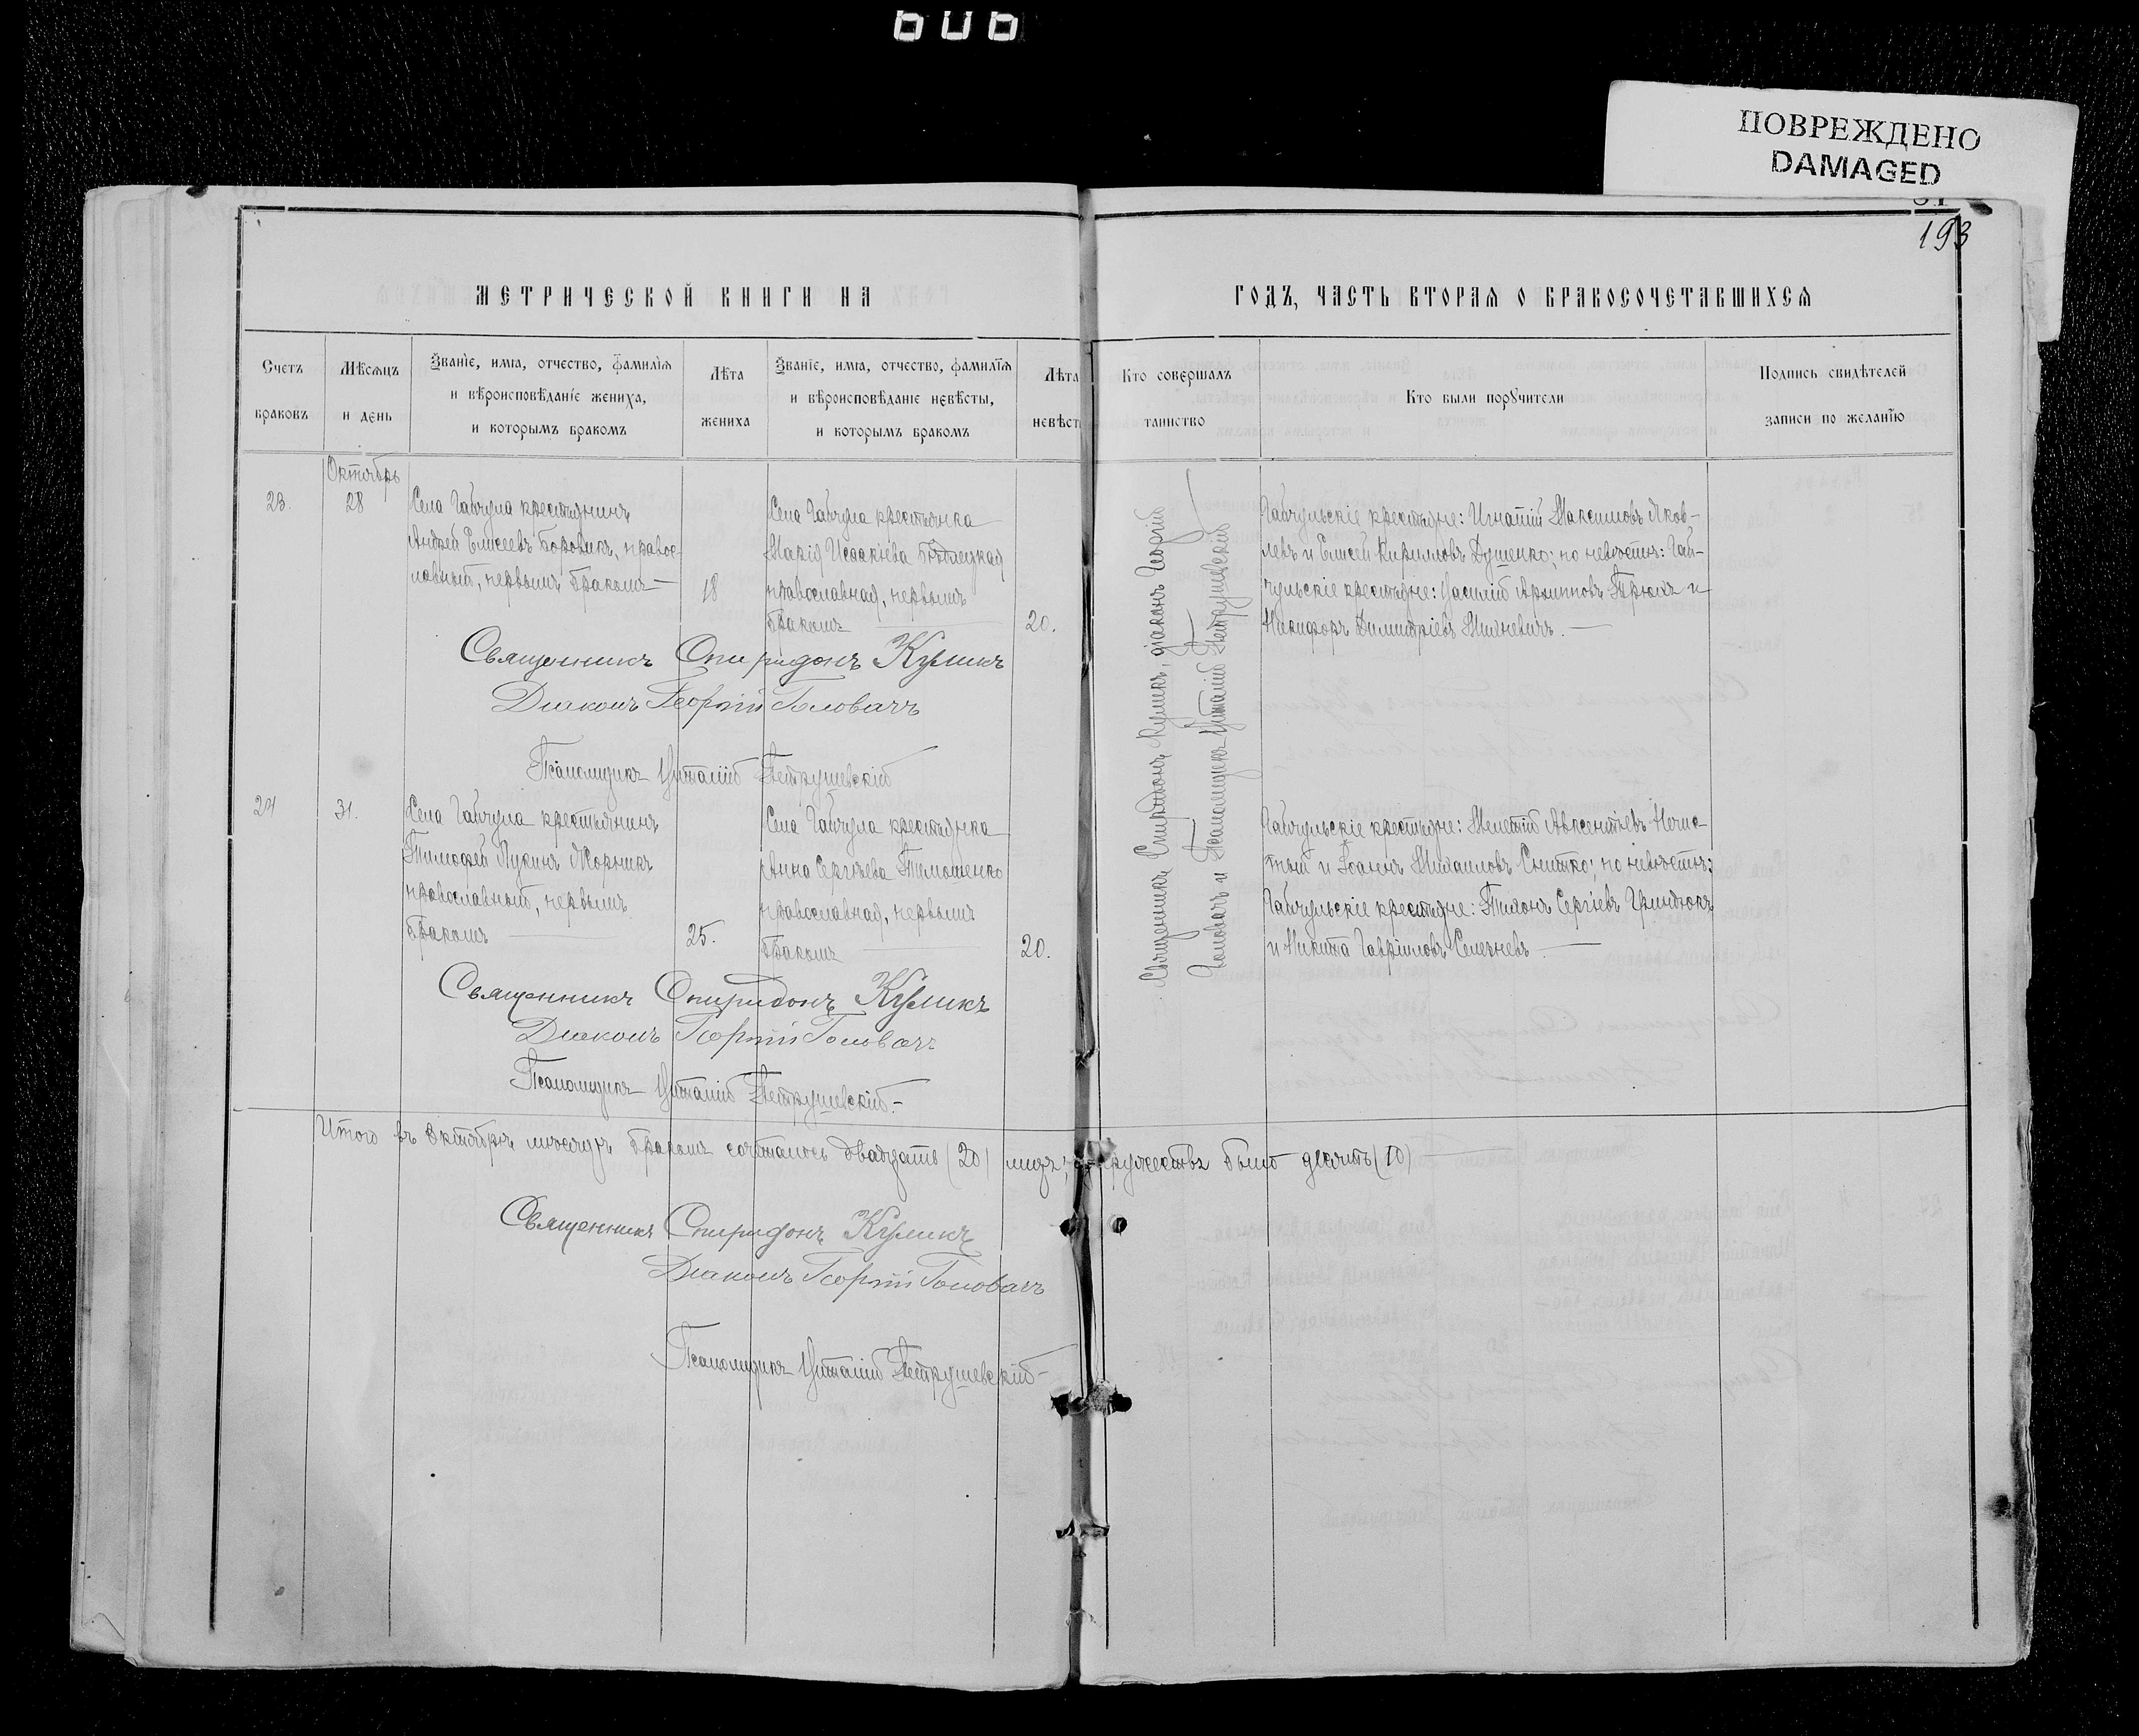 606
ПОВРЕЖДЕНО
DAMAGED
193
МЕТРИЧЕСКОЙ КНИГИ НА
ГОДЪ, ЧАСТЬ ВТОРАЯ О БРАКОСОЧЕТАВШИХСЯ
Счетъ браковъ
Мѣсяцъ и день
Званіе, имя, отчество, фамилія
и вѣроисповѣданіе жениха,
и которымъ бракомъ
Лѣта жениха
Званіе, имя, отчество, фамилія
и вѣроисповѣданіе невѣсты,
и которымъ бракомъ
Лѣта невѣст
Кто совершалъ
таинство
Кто были поручители
Подпись свидѣтелей
записи по желанію
Октябрь
23.
28
Села Гайчула крестьянинъ
Андрей Елисеевъ Боровикъ, правос-
лавный, первымъ бракомъ —
18
Села Гайчула крестьянка
Марія Исаакіева
православная, первымъ
бракомъ
20.
Священникъ Спиридонъ Куликъ, діаконъ Георгій
Головачъ и Псаломщикъ Виталій Петрушевскій
Гайчульскіе крестьяне: Игнатій Максимовъ Яков-
левъ и Елисей Кирилловъ Душенко; по невѣстѣ: Гай-
чульскіе крестьяне: Василій Архиповъ Брюхъ и
Никифоръ Димитріевъ Михневичъ. —
Священникъ Спиридонъ Куликъ
Діаконъ Георгій Головачъ
Псаломщикъ Виталій Петрушевскій
24
31.
Села Гайчула крестьянинъ
Тимофей Лукинъ Жорникъ
православный, первымъ
бракомъ
25.
Села Гайчула крестьянка
Анна Сергѣева Тимошенко
православная, первымъ
бракомъ
20.
Гайчульскіе крестьяне: Мелетій Авксентіевъ
и Іоаннъ Михаиловъ Снитко; по невѣстѣ:
Гайчульскіе крестьяне: Тихонъ Сергіевъ Гриндюкъ
и Никита Гавріиловъ Селезневъ —
Священникъ Спиридонъ Куликъ
Діаконъ Георгій Головачъ
Псаломщикъ Виталій Петрушевскій. —
Итого въ Октябрѣ мѣсяцѣ бракомъ сочеталось двадцать (20) лицъ; супружествъ было десять (10)
Священникъ Спиридонъ Куликъ
Діаконъ Георгій Головачъ
Псаломщикъ Виталій Петрушевскій —